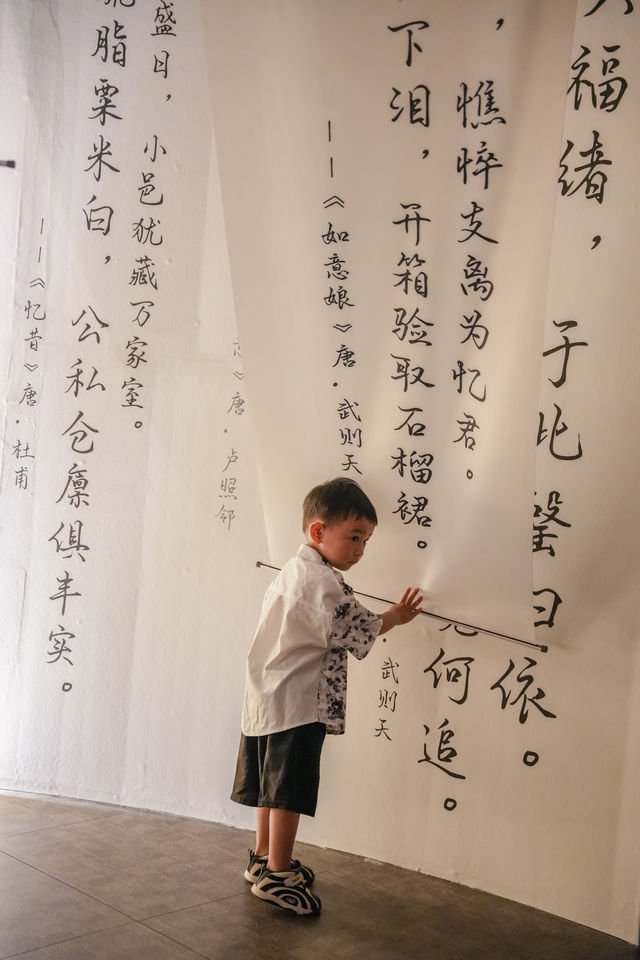 福绪，于比曰依。
何追。
·武则天
，憔悴支离为忆君。
下泪，开箱验取石榴裙。
——《如意娘》唐·武则天
》唐·卢照邻
盛日，小邑犹藏万家室。
脂粟米白，公私仓廪俱丰实。
——《忆昔》唐·杜甫